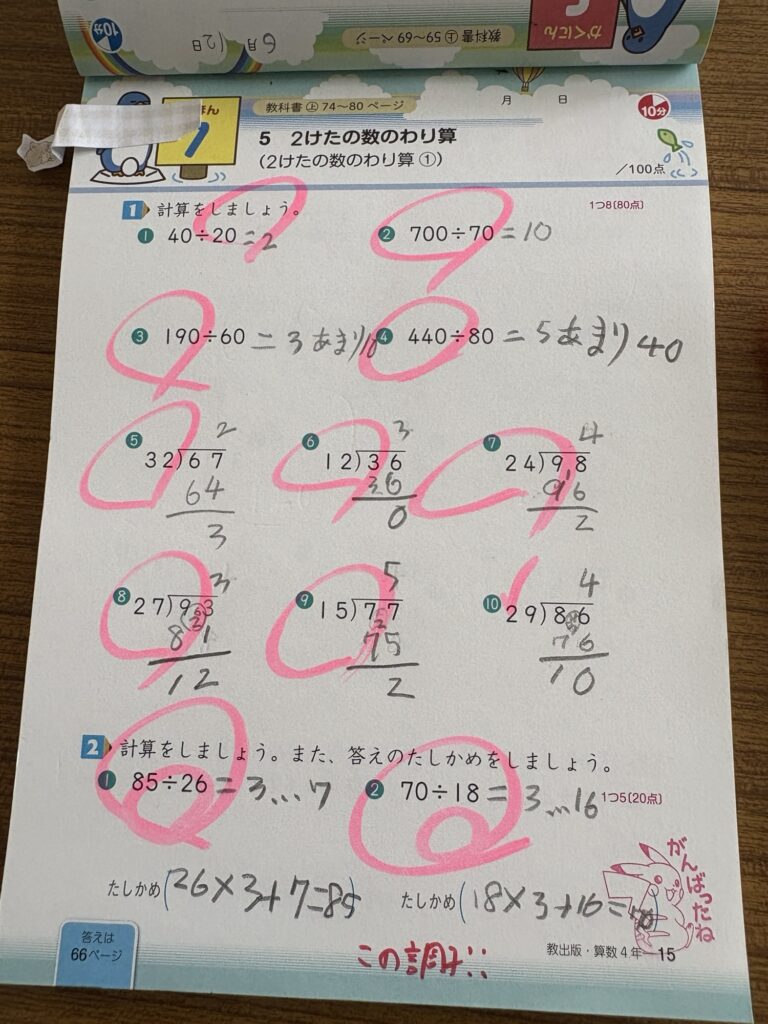 10分
6月12日
教科書㊤59〜69ページ
かくにん
教科書㊤74〜80ページ
月 日
10分
5 2けたの数のわり算
(2けたの数のわり算①)
/100点
1 計算をしましょう。
1つ8〔80点〕
① 40÷20=2
② 700÷70=10
③ 190÷60=3あまり10
④ 440÷80=5あまり40
⑤ 2
32)67
64
3
⑥ 3
12)36
36
0
⑦ 4
24)98
96
2
⑧ 3
27)93
81
12
⑨ 5
15)77
75
2
⑩ 4
29)86
76
10
2 計算をしましょう。また、答えのたしかめをしましょう。
① 85÷26=3…7
② 70÷18=3…16
1つ5〔20点〕
たしかめ(26×3+7=85)
たしかめ(18×3+16=70)
がんばったね
答えは
66ページ
この調子!!
教出版・算数4年―15